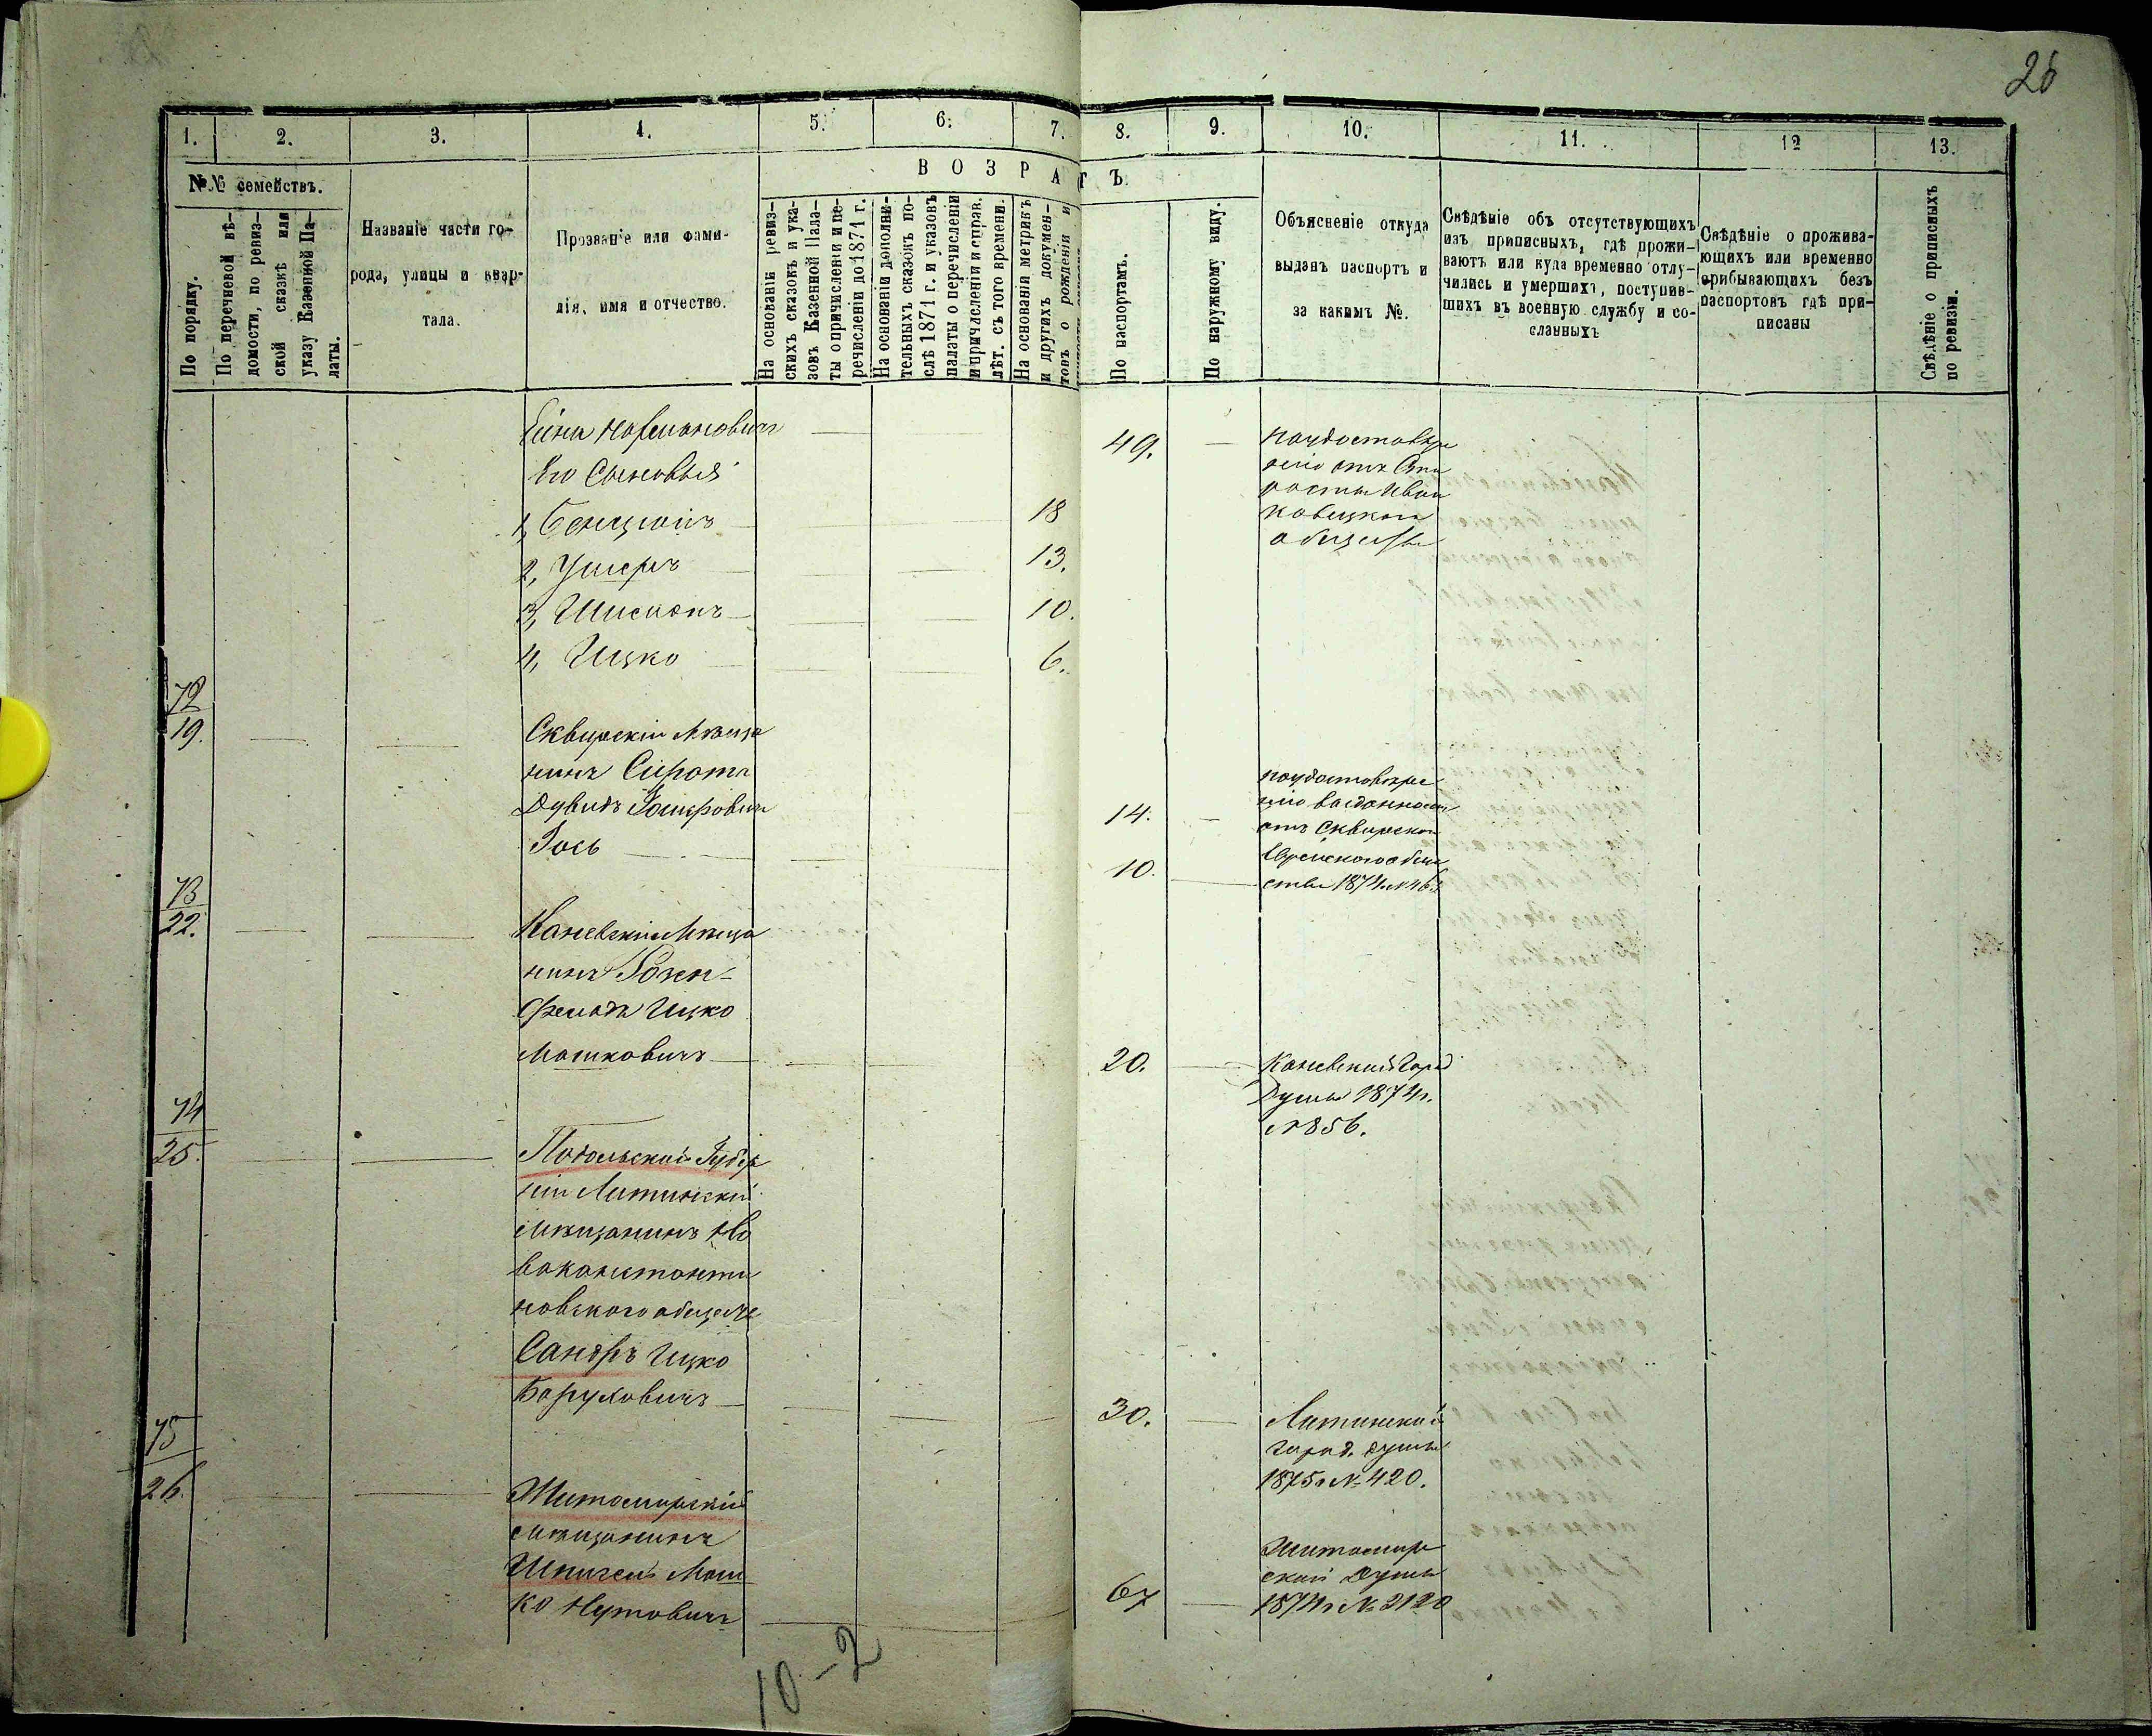 26
1. 2. 3. 4. 5. 6. 7. 8. 9. 10. 11. 12 13.
№№ семействъ.
По порядку.
По перечневой вѣ-
домости, по ревиз-
ской сказкѣ или
указу Казенной Па-
латы.
Названіе части го-
рода, улицы и квар-
тала.
Прозваніе или фами-
лія, имя и отчество.
ВОЗРАСТЪ
На основаніи ревиз-
скихъ сказокъ и ука-
зовъ Казенной Пала-
ты о причисленіи и пе-
речисленіи до 1871 г.
На основаніи дополни-
тельныхъ сказокъ по-
слѣ 1871 г. и указовъ
палаты о перечисленіи
и причисленіи и справ.
лѣт. съ того времени.
На основаніи метрикъ
и другихъ докумен-
товъ о рожденіи и
По паспортамъ.
По наружному виду.
Объясненіе откуда
выданъ паспортъ и
за какимъ №.
Свѣдѣніе объ отсутствующихъ
изъ приписныхъ, гдѣ прожи-
ваютъ или куда временно отлу-
чились и умершихъ, поступив-
шихъ въ военную службу и со-
сланныхъ
Свѣдѣніе о прожива-
ющихъ или временно
прибывающихъ безъ
паспортовъ гдѣ при-
писаны
Свѣдѣніе о приписныхъ
по ревизіи.
49.
Его Сыновья
1, Бенціонъ 18
2, Ушеръ 13.
3, 10.
4, Ицко 6.
72
19.
Сквирскій Мѣща
нинъ Сирота
Дувидъ 14.
Іось 10.
отъ Сквирска
Еврейского обще
ства 1874
73
22.
Каневскій Мѣща
нинъ Розен-
фельдъ Ицко
Мошковичъ 20.
Каневской Город
Думы 1874г.
№ 856.
74
25.
Подольской Губер
ніи Литинскій
мѣщанинъ Но
воконстанти
новского общест
Сандръ Ицко
Боруховичъ 30.
Литинской
город. думы
1875г № 420.
75
26.
Житомирскій
мѣщанинъ
Шпигель Мош
ко Нутовичъ 67
Житомир
ской Думы
1874г № 2120
10-2